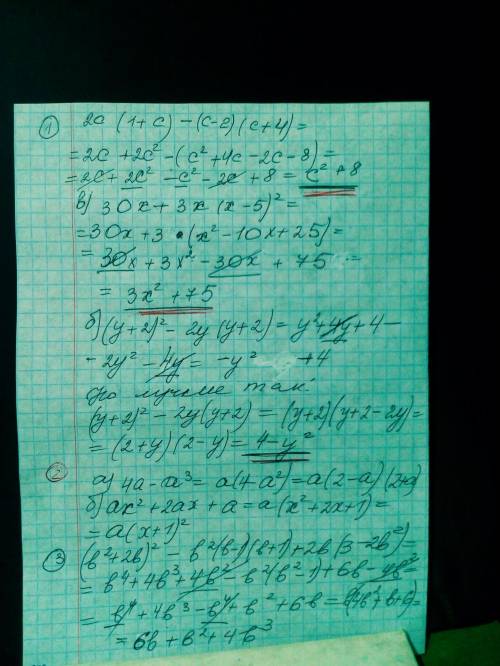 ① 2c (1+c) - (c-2)(c+4) =
= 2c + 2c² - (c² + 4c - 2c - 8) =
= 2c + 2c² - c² - 2c + 8 = c² + 8
в) 30x + 3x (x-5)² =
= 30x + 3 · (x² - 10x + 25) =
= 30x + 3x² - 30x + 75 =
= 3x² + 75
б) (y+2)² - 2y (y+2) = y² + 4y + 4 -
- 2y² - 4y = -y² + 4
но лучше так:
(y+2)² - 2y(y+2) = (y+2)(y+2-2y) =
= (2+y)(2-y) = 4-y²
② а) 4a - a³ = a(4-a²) = a(2-a)(2+a)
б) ax² + 2ax + a = a(x² + 2x + 1) =
= a(x+1)²
③ (b² + 2b)² - b²(b-1)(b+1) + 2b(3-2b²) =
= b⁴ + 4b³ + 4b² - b²(b²-1) + 6b - 4b²
= b⁴ + 4b³ - b⁴ + b² + 6b =
= 6b + b² + 4b³